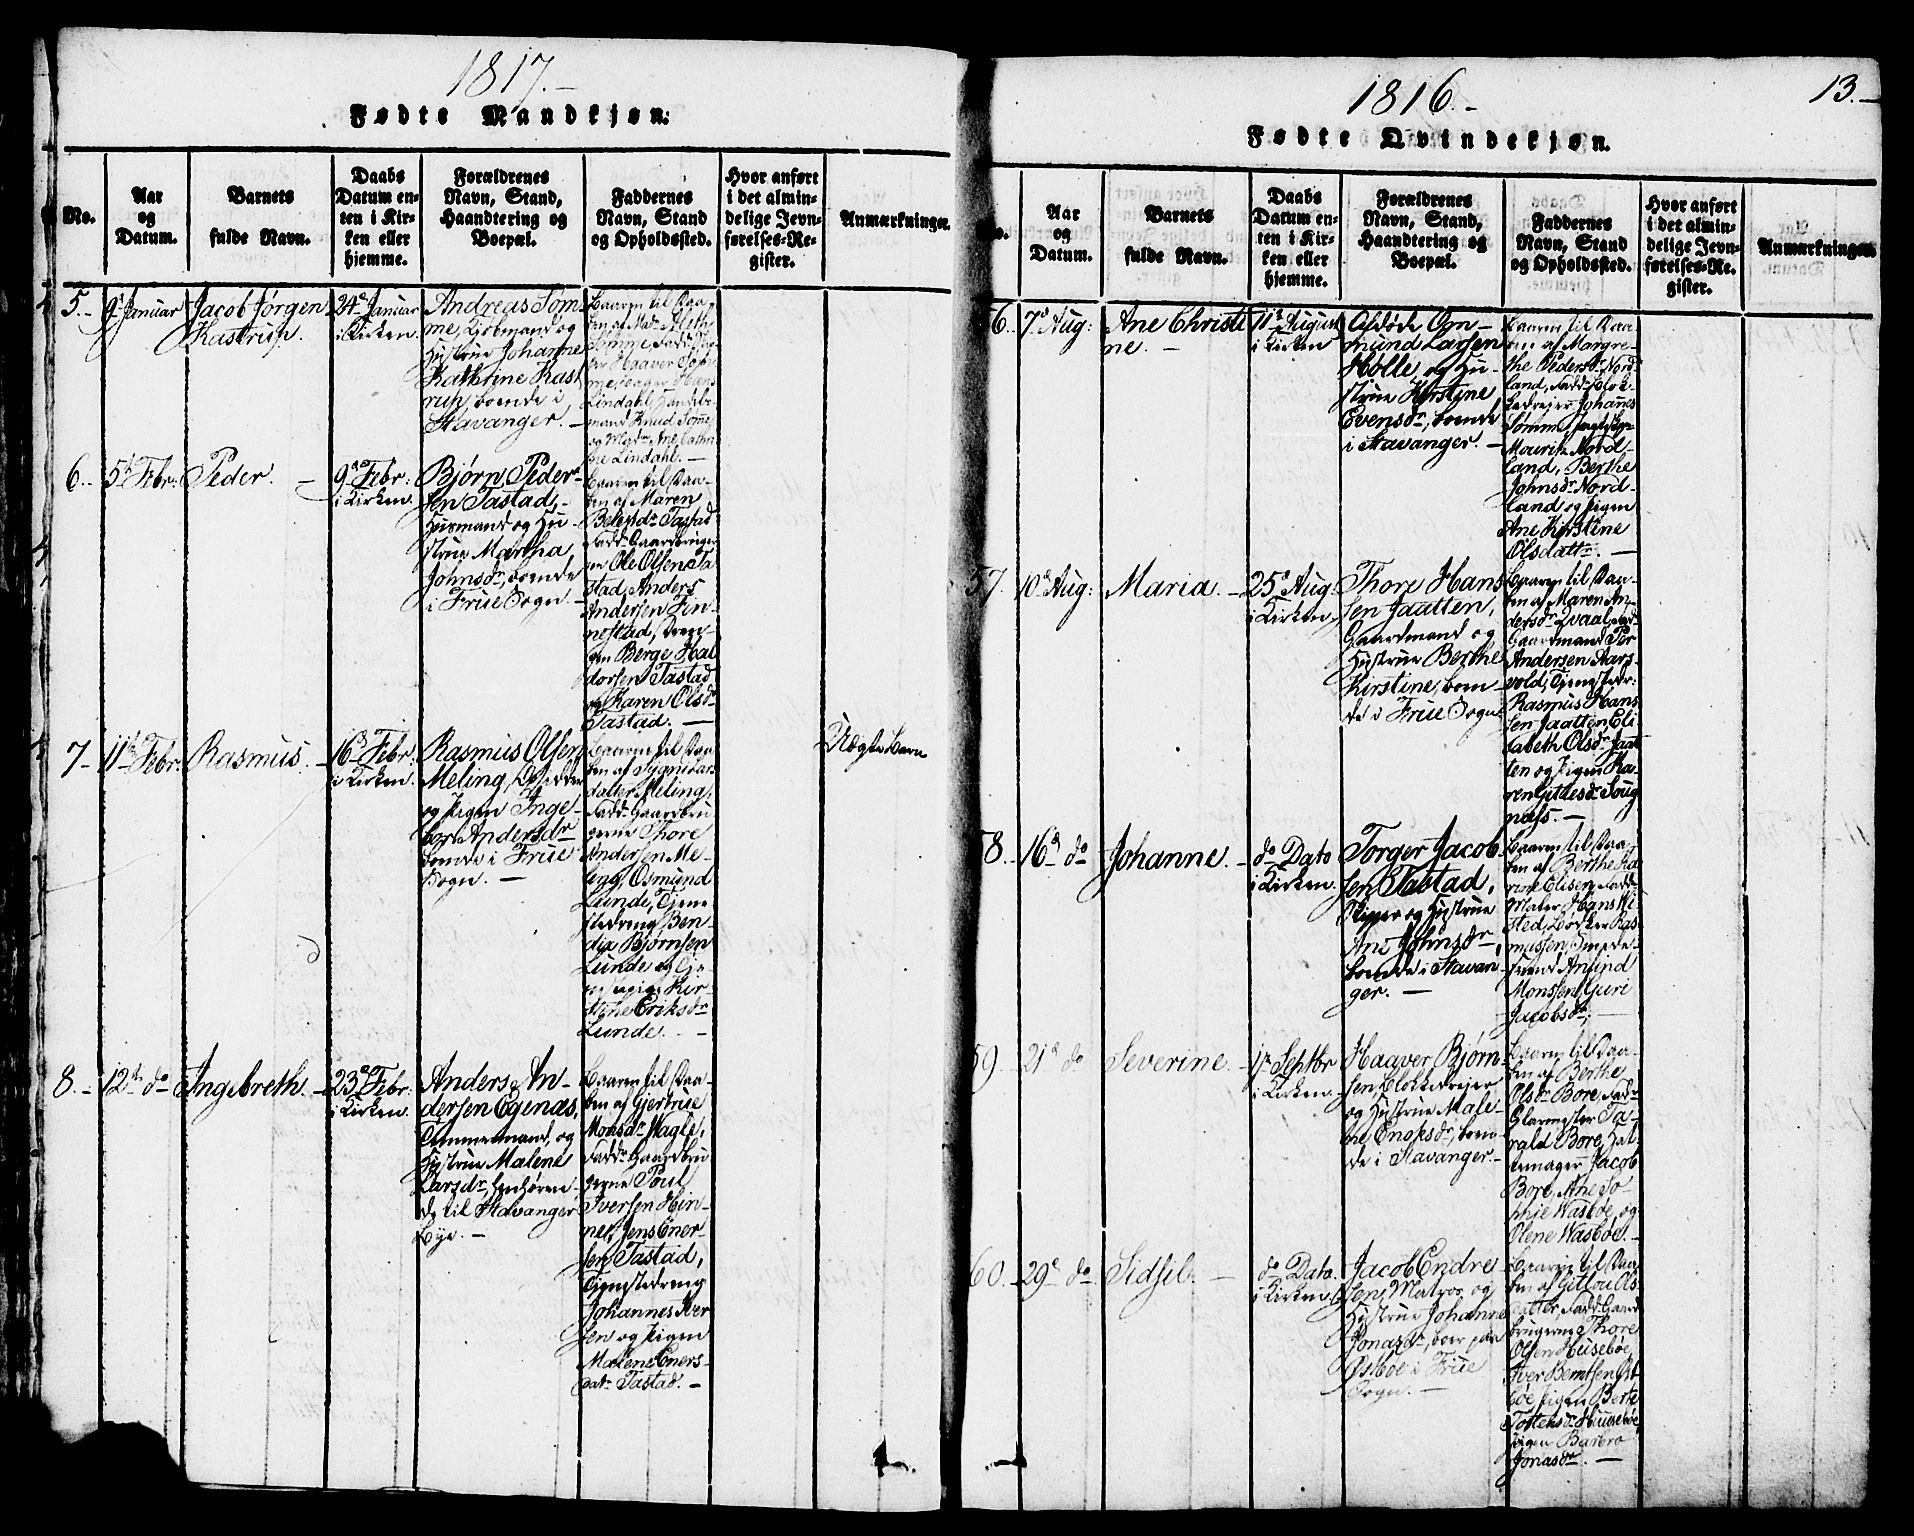 1817.-
Fødte Mandkjøn.
No.
Aar
og
Datum.
Barnets
fulde Navn.
Daabs
Datum en-
ten i Kir-
ken eller
hjemme.
Forældrenes
Navn, Stand,
Haandtering og
Boepæl.
Faddernes
Navn, Stand
og Opholdssted.
Hvor anført
i det almin-
delige Jevn-
førelses-Re-
gister.
Anmærkninger.
5.-
9d Januar
Jacob Jørgen
Kastrup.
24d Januar
i Kirken.
Andreas Søm-
me, Kjøbmand og
Hustrue Johanne
Kathrine Kast
rup, boende i
Stavanger. -
Baaren til Daa-
ben af Mad: Aleth
Sømme, Fadd:
Haaver Søm-
me, Hans
Lindahl,
mand Knud Sømme
og Ane Cathri-
ne Lindahl. -
6.-
5t Febr:
Peder. -
9d Febr:
i Kirken.
Bjørn Peder-
sen Tastad,
Huusmand og Hu-
strue Martha
Johnsdr, boende
i Frue Sogn. -
Baaren til Daa-
ben af Maren
Tastad
Fadd: Gaardbruger-
ne Ole Olsen Ta-
stad, Anders
Andersen Fin-
nestad, Dren-
gen Berge Hal
dorsen Tastad
og Karen Olsdr
Tastad. -
7-
11te Febr:
Rasmus. -
16d Febr:
i Kirken.
Rasmus Olsen
Meling,
og Pigen Inge-
bor Andersdr
boende i Frue
Sogn. -
Baaren til Daa-
ben af
datter Meling,
Fadd: Gaardbru
gerne Thore
Andersen Me-
ling, Osmund
Lunde, Tjene
stedreng Ben-
dix Bjørnsen
Lunde og Tje-
Kir-
stine Eriksdr
Lunde. -
Uægte Barn
8.-
12te do
Ingebreth. -
23d Febr:
i Kirken.
Anders An-
dersen Egenæs,
Tømmermand, og
Hustrue Malene
Larsdr, henhøren-
de til Stavanger
Bye. -
Baaren til Daa-
ben af Gjertrue
Monsdr Nagle,
Fadd: Gaardbru
gerne Poul
Iversen Hin-
ne, Jens Ener-
sen Tastad,
Tjenstedreng
Johannes Iver
sen og Pigen
Malene Eners-
datr Tastad. -
1816.-
13.-
Fødte Qvindekjøn.
No.
Aar
og
Datum.
Barnets
fulde Navn.
Daabs
Datum en-
ten i Kir-
ken eller
hjemme.
Forældrenes
Navn, Stand,
Haandtering og
Boepæl.
Faddernes
Navn, Stand
og Opholdssted.
Hvor anført
i det almin-
delige Jevn-
førelses-Re-
gister.
Anmærkninger.
56.
7d Aug:
Ane Christi
ne. -
11te August
i Kirken
Afdøde Om-
mund Larsen
Hølle og Hu-
strue Kirstine
Evensdr, boende
i Stavanger. -
Baaren til Daa-
ben af Margre-
the Pedersdr Nord-
land, Fadd: Blok-
kedreier Johanes
Sømme,
Mourits Nord-
land, Berthe
Johnsdr Nord-
land og Pigen
Ane Kirstine
Olsdattr. -
57.
10d Aug:
Maria. -
25d Aug:
i Kirken.
Thore Hans
sen Jaatten,
Gaardmand og
Hustrue Berthe
Kirstine, boen-
de i Frue Sogn.
Baaren til Daa-
ben af Maren An-
dersdr Qvaal, Fad:
Gaardmand Per
Andersen Aars-
vold, Tjenstedr:
Rasmus Hans
sen Jaatten, Eli-
sabeth Olsdr Jaat
ten og Pigen Ka-
ren Gitlesdr Soug
næss. -
58.
16d do
Johanne. -
do Dato
i Kirken.
Torger Jacob-
sen Tastad,
Skipper og Hustrue
Ane Johnsdr,
boende i Stavan-
ger. -
Baaren til Daa-
ben af Berthe Ka
rine Elisen, Fadd:
Maler Hans Ki
sted, Bødker Ras
mussen, Smede-
svend Amund
Monssen, Guri
Jacobsdr. -
59.
21d do
Severine. -
1te Septbr
i Kirken. -
Haaver Bjørn-
sen, Blokkedreier
og Hustrue Male-
ne Enoksdr, boen-
de i Stavanger. -
Baaren til Daa-
ben af Berthe
Olsdr Bore, Fadd:
Glarmester Ta-
rald Bore, Hat-
temager Jacob
Bore, Ane So-
phie Wasbøe, og
Olene Wasbøe. -
60.
29d do
Sidsel. -
do Dato.
i Kirken.
Jacob Endre
sen, Matros, og
Hustrue Johanne
Jonasdr, boer paa
Østbøe i Frue
Sogn. -
Baaren til Daa-
ben af Gitlou Ols
datter, Fadd: Gaard
brugerne Thore
Olsen Husebøe,
Iver Berntsen Øst
bøe, Pigen Berte
Tostensdr Huusebøe
Pigen Barbro
Jonasdr. -